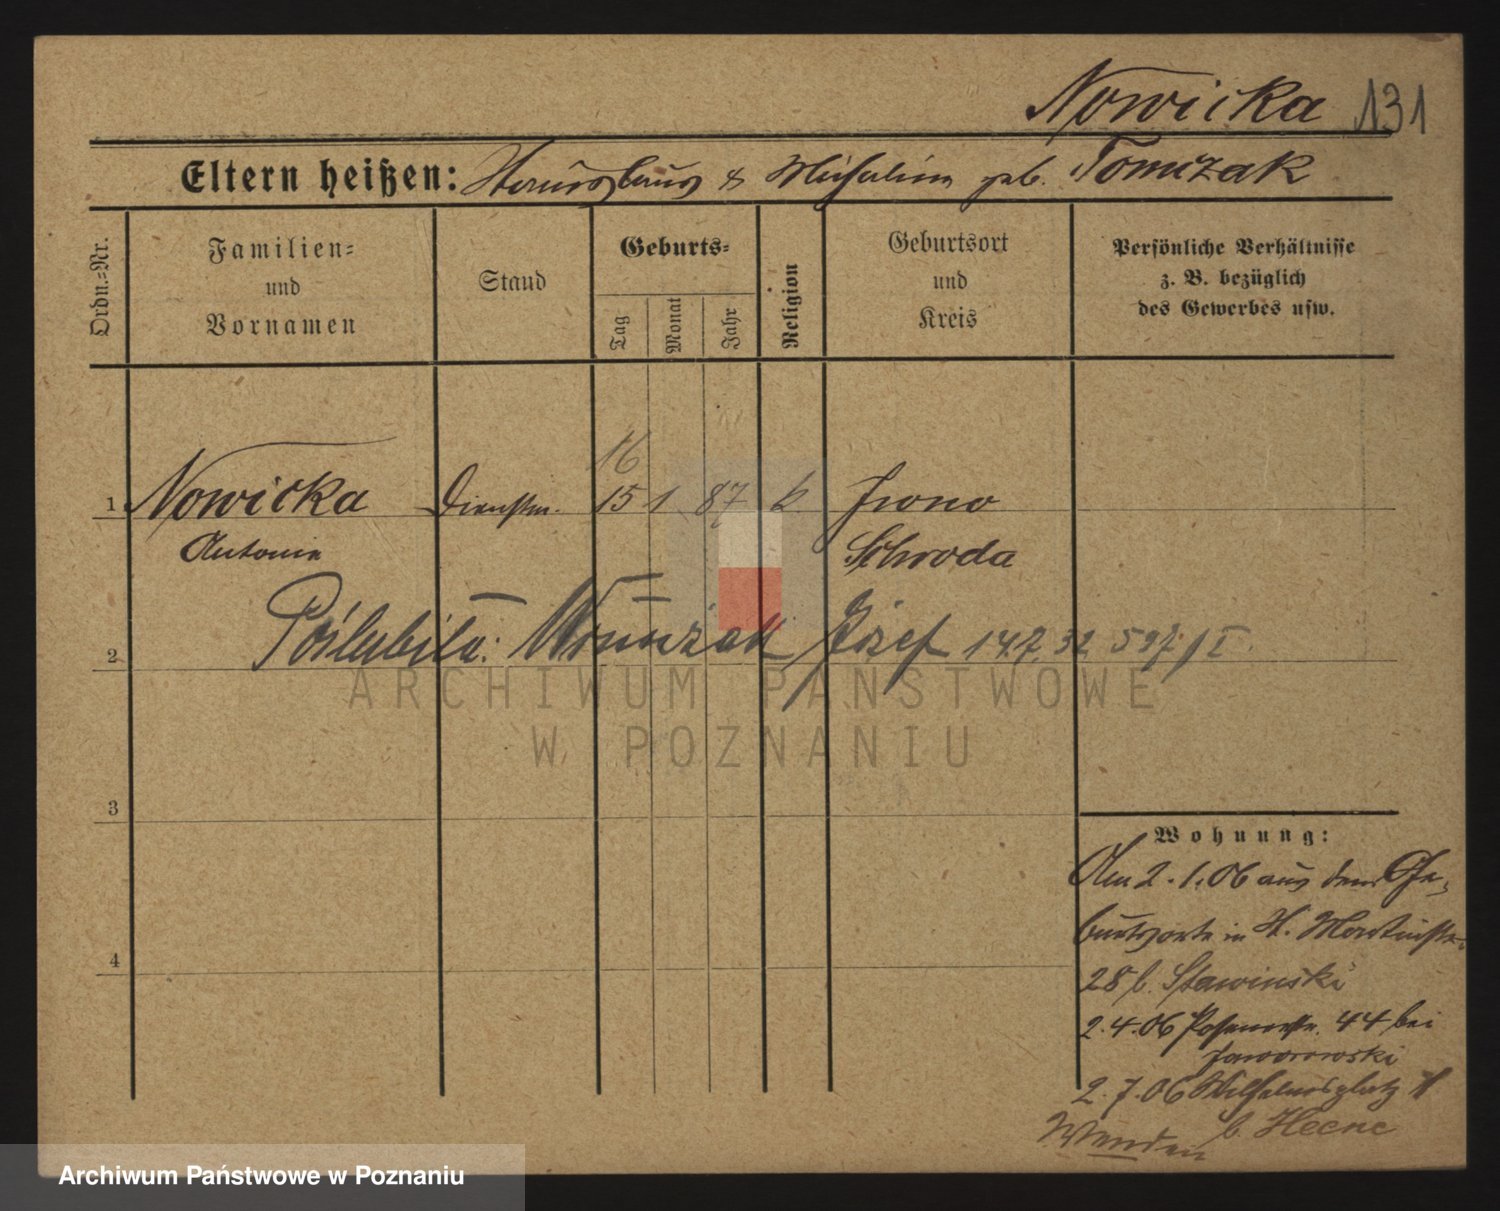 Nowicka 131
Eltern heißen: Stanislaus & Michalina geb. Tomczak
Ordn.-Nr.
Familien-
und
Vornamen
Stand
Geburts-
Tag
Monat
Jahr
Religion
Geburtsort
und
Kreis
Persönliche Verhältnisse
z. B. bezüglich
des Gewerbes usw.
16
1 Nowicka Dienstm. 15 1 87 k.
Antonie Schroda
Poślubiła: Józef 14.7.32 597/I.
2
3
4
Wohnung:
Am 2.1.06 aus dem Ge-
burtsorte in St. Martinstr.
28 b. Stawinski
2.4.06 Posenerstr. 44 bei
Jaworowski
2.7.06 Wilhelmsplatz
b. Heene
Wenden
ARCHIWUM PAŃSTWOWE
W POZNANIU
Archiwum Państwowe w Poznaniu